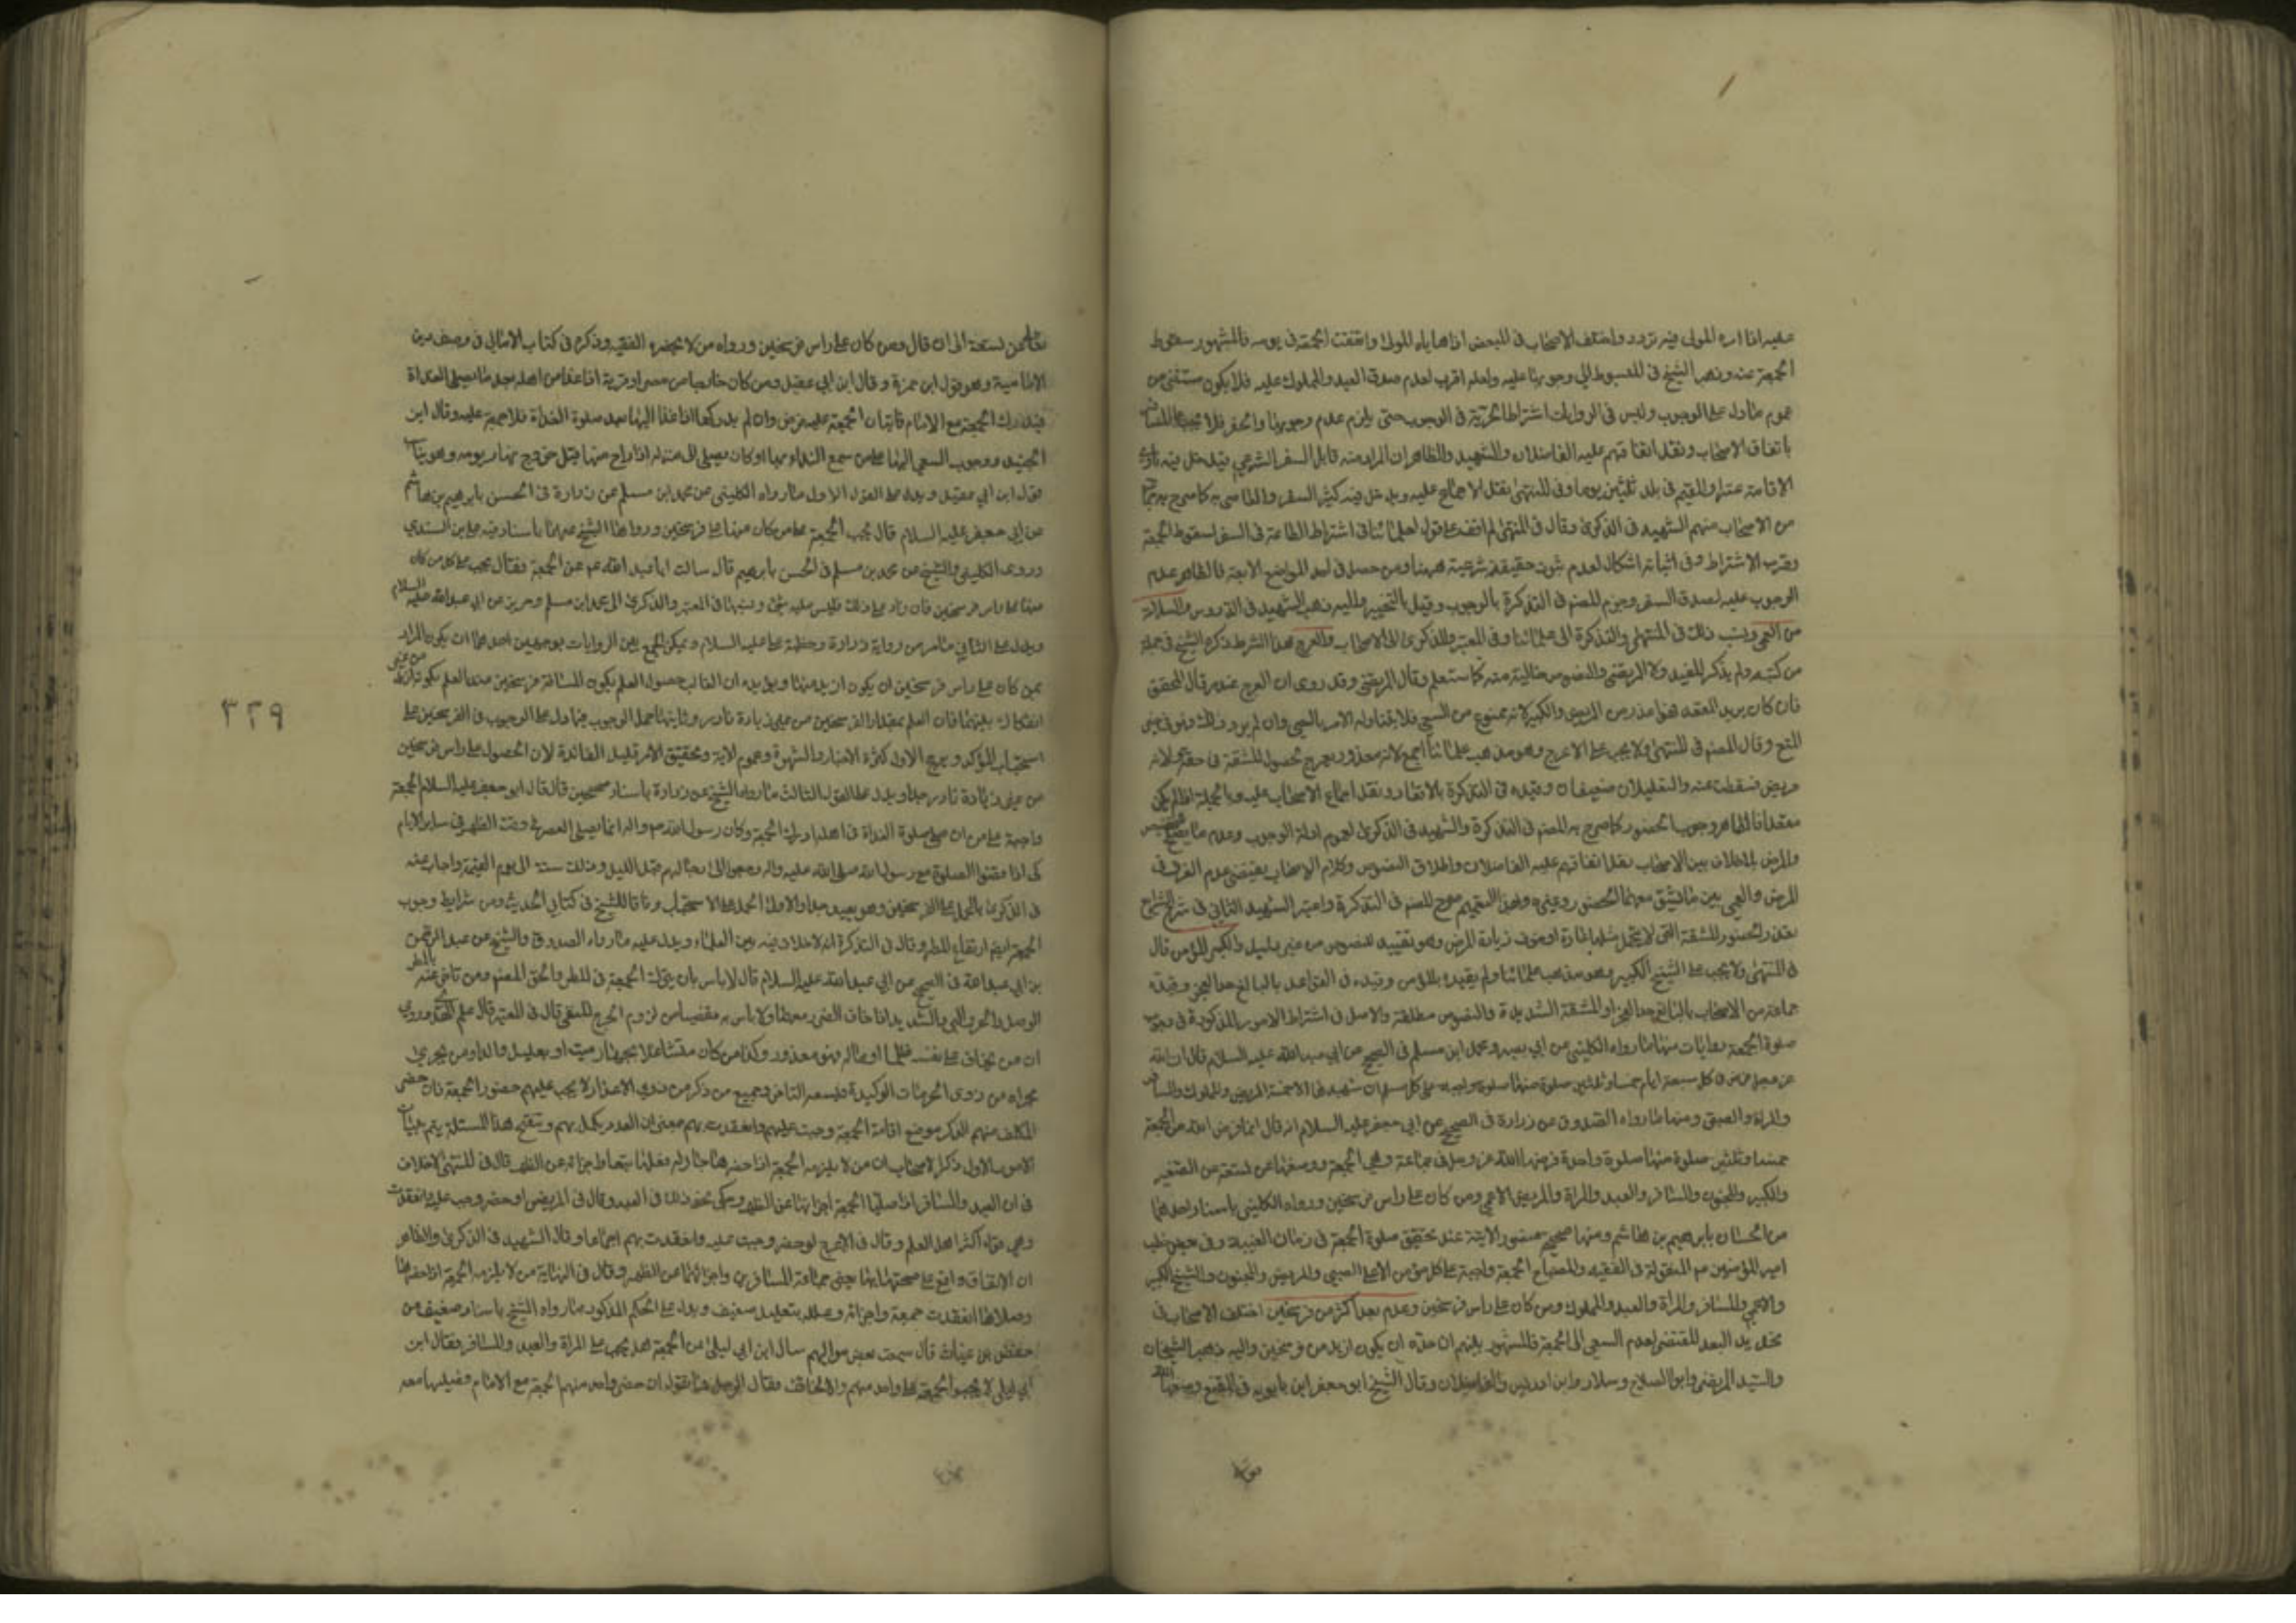 عليه اذا امره المولى فيه تردد واختلف الاصحاب في المبعض اذا هاياه المولى واتفقت الجمعة في يومه فالمشهور سقوط
الجمعة عنه ونصر الشيخ في المبسوط الى وجوبها عليه ولعله اقرب لعدم صدق العبد والمملوك عليه فلا يكون مستثنى من
عموم ما دل على الوجوب وليس في الروايات اشتراط الحرية في الوجوب حتى يلزم عدم وجوبها والحضر فلا يجب على المسافر
باتفاق الاصحاب ونقل اتفاقهم عليه الفاضلان والشهيد والظاهر ان المراد منه قابل السفر الشرعي فيدخل فيه ناوي
الاقامة عشرا والمقيم في بلد ثلثين يوما وفي المنتهى نقل الاجماع عليه ويدخل فيه كثير السفر والعاصي به كما صرح به جماعة
من الاصحاب منهم الشهيد في الذكرى وقال في المنتهى لم اقف على قول لعلمائنا في اشتراط الطاعة في السفر لسقوط الجمعة
وقرب الاشتراط وفي اثباته اشكال لعدم ثبوت حقيقة شرعية ههنا ومن حصل في احد المواضع الاربعة فالظاهر عدم
الوجوب عليه لصدق السفر وجزم المصنف في التذكرة بالوجوب وقيل بالتخيير واليه ذهب الشهيد في الدروس والسلامة
من العمى ونسب ذلك في المنتهى والتذكرة الى علمائنا وفي المعتبر والذكرى الى الاصحاب والعرج هذا الشرط ذكره الشيخ في جملة
من كتبه ولم يذكر المفيد ولا المرتضى والنصوص خالية منه كما ستعلم وقال المرتضى وقد روى ان العرج عذر قال المحقق
فان كان يريد المقعد فهو اعذر من المريض والكبير لانه ممنوع من السعي فلا يتناوله الامر بالسعي وان لم يرد ذلك فهو في حيز
المنع وقال المصنف في المنتهى ولا يجب على الاعرج وهو مذهب علمائنا اجمع لانه معذور بعرج لحصول المشقة في حقه ولانه
مريض فسقطت عنه والتعليلان ضعيفان وقيده في التذكرة بالاقعاد ونقل اجماع الاصحاب عليه وبالجملة اذا لم يكن
مقعدا فالظاهر وجوب الحضور كما صرح به المصنف في التذكرة والشهيد في الذكرى لعموم ادلة الوجوب وعدم ما يصلح للتخصيص
والمرض بلا خلاف بين الاصحاب نقل اتفاقهم عليه الفاضلان واطلاق النصوص وكلام الاصحاب يقتضي عدم الفرق في
المرض والعمى بين ما يشق معهما الحضور وغيره وبهذا التعميم صرح المصنف في التذكرة واعتبر الشهيد الثاني في شرح الشرايع
تعذر الحضور او المشقة التي لا يتحمل مثلها عادة او خوف زيادة المرض وهو تقييد للنصوص من غير دليل والكبر المزمن قال
في المنتهى ولا يجب على الشيخ الكبير وهو مذهب علمائنا ولم يقيده بالمزمن وقيده في القواعد بالبالغ حد العجز وقيده
جماعة من الاصحاب بالبالغ حد العجز او المشقة الشديدة والنصوص مطلقة والاصل في اشتراط الامور المذكورة في وجوب
صلوة الجمعة روايات منها ما رواه الكليني عن ابي بصير ومحمد ابن مسلم في الصحيح عن ابي عبد الله عليه السلام قال ان الله
عز وجل فرض في كل سبعة ايام خمسا وثلثين صلوة منها صلوة واجبة على كل مسلم ان شهيدها الا خمسة المريض والمملوك والمسافر
والمراة والصبي ومنها ما رواه الصدوق عن زرارة في الصحيح عن ابي جعفر عليه السلام انه قال انما فرض الله من الجمعة
خمسا وثلثين صلوة منها صلوة واحدة فرضها الله عز وجل في جماعة وهي الجمعة ووضعها عن تسعة عن الصغير
والكبير والمجنون والمسافر والعبد والمراة والمريض والاعمى ومن كان على راس فرسخين ورواه الكليني باسناد احدهما
من الحسان بابرهيم بن هاشم ومنها صحيحة منصور الاتية عند تحقيق صلوة الجمعة في زمان الغيبة وفي بعض خطب
امير المؤمنين ع المنقولة في الفقيه والمصباح الجمعة واجبة على كل مؤمن الا على الصبي والمريض والمجنون والشيخ الكبير
والاعمى والمسافر والمراة والعبد والمملوك ومن كان على راس فرسخين وعدم بعد اكثر من فرسخين اختلف الاصحاب في
تحديد البعد المقتضي لعدم السعي الى الجمعة فالمشهور بينهم ان حده ان يكون ازيد من فرسخين واليه ذهب الشيخان
والسيد المرتضى وابو الصلاح وسلار وابن ادريس والفاضلان وقال الشيخ ابو جعفر ابن بابويه في المقنع وضعها الله
تعالى عن تسعة الى ان قال ومن كان على راس فرسخين ورواه من لا يحضره الفقيه وذكره في كتاب الامالي في وصف دين
الامامية وهو قول ابن حمزة وقال ابن ابي عقيل ومن كان خارجا من مصر او قرية اذا غدا من اهله بعد ما يصلي الغداة
فيدرك الجمعة مع الامام فاتيان الجمعة عليه فرض وان لم يدركها اذا غدا اليها بعد صلوة الغداة فلا جمعة عليه وقال ابن
الجنيد ووجوب السعي اليها على من سمع النداء بها او كان يصل الى منزله اذا راح منها قبل خروج نهار يومه وهو يناسب
قول ابن ابي عقيل ويدل على القول الاول ما رواه الكليني عن محمد ابن مسلم عن زرارة في الحسن بابرهيم بن هاشم
عن ابي جعفر عليه السلام قال تجب الجمعة على من كان منها على فرسخين ورواها الشيخ عنهما باسناد فيه علي بن السندي
وروى الكليني والشيخ عن محمد بن مسلم في الحسن بابرهيم قال سالت ابا عبد الله ع عن الجمعة فقال يجب على كل من كان
منها على راس فرسخين فان زاد على ذلك فليس عليه شئ ونسبها في المعتبر والذكرى الى محمد ابن مسلم وحريز عن ابي عبد الله عليه السلام
ويدل على الثاني ما مر من رواية زرارة وخطبة علي عليه السلام ويمكن الجمع بين الروايات بوجهين احدهما ان يكون المراد
بمن كان على راس فرسخين ان يكون ازيد منها ويؤيده ان الغالب حصول العلم بكون المسافة فرسخين عند العلم بكونه ازيد
انفكاك بينهما فان العلم بمقدار الفرسخين من غير زيادة نادر وثانيهما حمل الوجوب فيما دل على الوجوب في الفرسخين على
استحباب المؤكد ويرجح الاول كثرة الاخبار والشهرة وعموم الاية وتحقيق الامر قليل الفائدة لان الحصول على راس فرسخين
من غير زيادة نادر جدا ويدل على القول الثالث ما رواه الشيخ عن زرارة باسناد صحيحين قال قال ابو جعفر عليه السلام الجمعة
واجبة على من ان صلى صلوة الغداة في اهله ادرك الجمعة وكان رسول الله ص واله انما يصلي العصر في وقت الظهر في ساير الايام
كي اذا قضوا الصلوة مع رسول الله صلى الله عليه واله رجعوا الى رحالهم قبل الليل وذلك سنة الى يوم القيمة واجاب عنه
في الذكرى بالحمل على الفرسخين وهو بعيد جدا والاولى الحمل على الاستحباب وفاقا للشيخ في كتابي الحديث ومن شرايط وجوب
الجمعة ايضا ارتفاع المطر وقال في التذكرة انه لا خلاف فيه بين العلماء ويدل عليه ما رواه الصدوق والشيخ عن عبد الرحمن
بن ابي عبد الله في الصحيح عن ابي عبد الله عليه السلام قال لا باس بان يترك الجمعة في المطر والحق المصنف ومن تاخر عنه بالمطر
الوحل والحر والبرد الشديد اذا خاف الضرر معهما ولا باس به تفصيا من لزوم الحرج المنفي قال في المعتبر قال علم الهدى وروي
ان من يخاف على نفسه ظلما او ماله فهو معذور وكذا من كان متشاغلا بجهاز ميت او تعليل والد او من يجري
مجراه من ذوى الحرمات الوكيدة يسعه التاخر وجميع من ذكر من ذوي الاعذار لا يجب عليهم حضور الجمعة فان حضر
المكلف منهم الذكر موضع اقامة الجمعة وجبت عليهم وانعقدت بهم بمعنى ان العدد يكمل بهم وتنقيح هذا المسئلة يتم ببيان
الامور الاول ذكر الاصحاب ان من لا يلزمه الجمعة اذا حضرها جاز له فعلها تبعا واجزاته عن الظهر قال في المنتهى لا خلاف
في ان العبد والمسافر اذا صليا الجمعة اجزاتهما عن الظهر وحكي نحو ذلك في العبد وقال في المريض لو حضر وجب عليه وانعقدت
وهي قول اكثر اهل العلم وقال في الاعرج لو حضر وجبت عليه وانعقدت بهم اجماعا وقال الشهيد في الذكرى والظاهر
ان الاتفاق واقع على صحتها بها يعني جماعة المسافرين واجزائها عن الظهر وقال في النهاية من لا يلزمه الجمعة اذا حضرها
وصلاها انعقدت جمعة واجزاته وعلله بتعليل ضعيف ويدل على الحكم المذكور ما رواه الشيخ باسناد ضعيف عن
حفص بن غياث قال سمعت بعض مواليهم سال ابن ابي ليلى عن الجمعة هل يجب على المراة والعبد والمسافر فقال ابن
ابي ليلى لا يجب الجمعة على واحد منهم والا الخائف فقال الرجل فما تقول ان حضر واحد منهم الجمعة مع الامام فصليها معه
٣٢٩